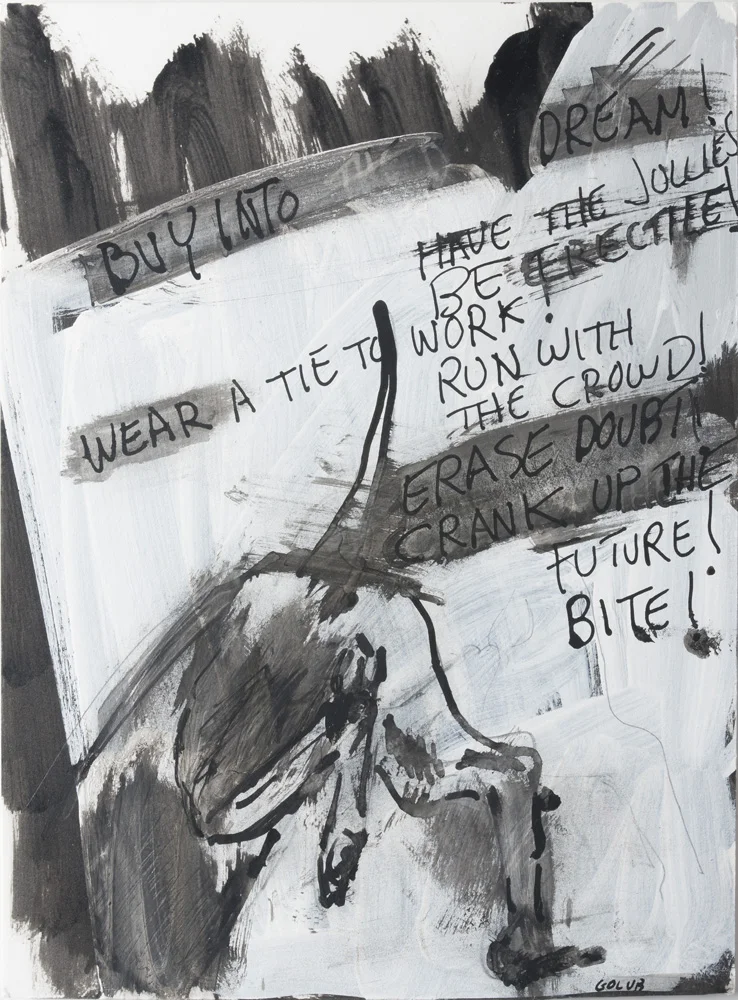 DREAM!
BUY INTO
HAVE THE JOLLIES
BE ERECTILE!
WEAR A TIE TO WORK!
RUN WITH
THE CROWD!
ERASE DOUBT!
CRANK UP THE
FUTURE!
BITE!
GOLUB